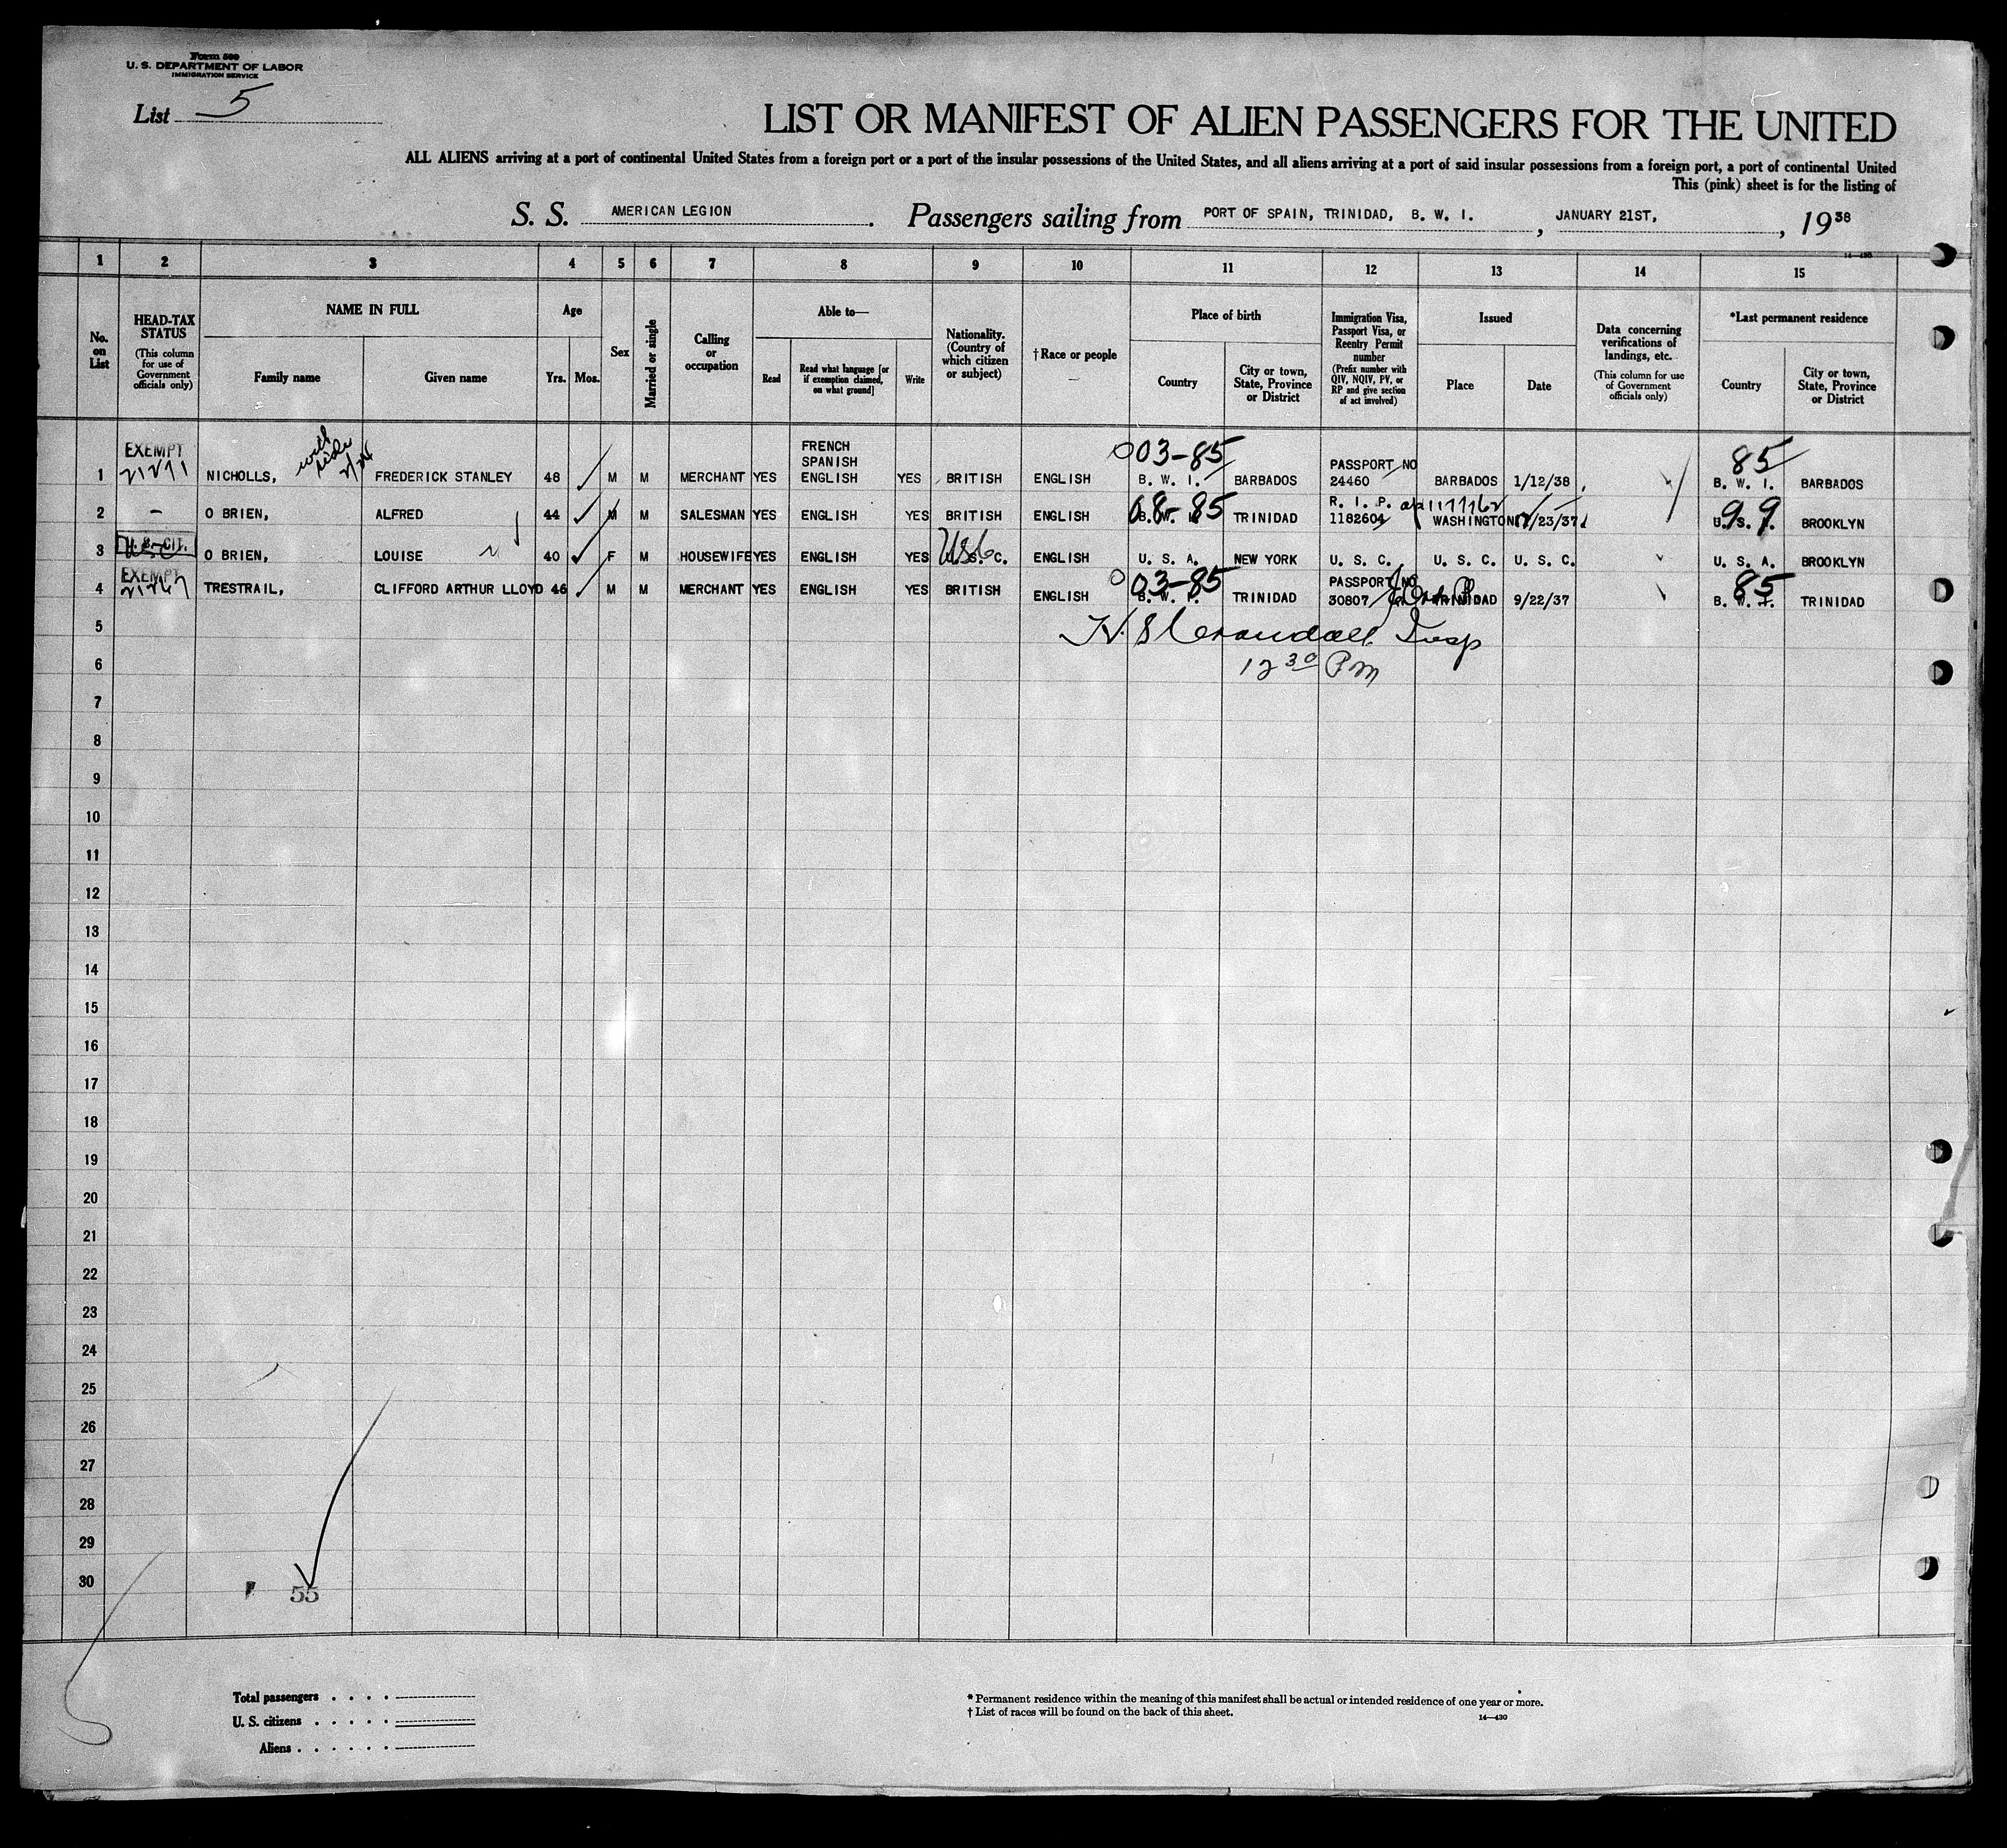 Form 500
U. S. DEPARTMENT OF LABOR
IMMIGRATION SERVICE
List 5
LIST OR MANIFEST OF ALIEN PASSENGERS FOR THE UNITED
ALL ALIENS arriving at a port of continental United States from a foreign port or a port of the insular possessions of the United States, and all aliens arriving at a port of said insular possessions from a foreign port, a port of continental United
This (pink) sheet is for the listing of
S. S. AMERICAN LEGION. Passengers sailing from PORT OF SPAIN, TRINIDAD, B. W. I. , JANUARY 21ST, , 19 38
14—430
1 2 3 4 5 6 7 8 9 10 11 12 13 14 15
No. on List
HEAD-TAX STATUS
(This column for use of Government officials only)
NAME IN FULL
Family name
Given name
Age
Yrs. Mos.
Sex
Married or single
Calling or occupation
Able to—
Read
Read what language [or if exemption claimed, on what ground]
Write
Nationality. (Country of which citizen or subject)
†Race or people
Place of birth
Country
City or town, State, Province or District
Immigration Visa, Passport Visa, or Reentry Permit number
(Prefix number with QIV, NQIV, PV, or RP and give section of act involved)
Issued
Place
Date
Data concerning verifications of landings, etc.
(This column for use of Government officials only)
*Last permanent residence
Country
City or town, State, Province or District
EXEMPT FRENCH SPANISH 03-85 PASSPORT NO 85
1 NICHOLLS, FREDERICK STANLEY 48 M M MERCHANT YES ENGLISH YES BRITISH ENGLISH B. W. I. BARBADOS 24460 BARBADOS 1/12/38 B. W. I. BARBADOS
08-85 R. I. P. 99
2 – O BRIEN, ALFRED 44 M M SALESMAN YES ENGLISH YES BRITISH ENGLISH B. W. I. TRINIDAD 1182604 WASHINGTON /23/37 BROOKLYN
U. S. CIT.
3 O BRIEN, LOUISE 40 F M HOUSEWIFE YES ENGLISH YES U. S. C. ENGLISH U. S. A. NEW YORK U. S. C. U. S. C. U. S. C. U. S. A. BROOKLYN
EXEMPT 03-85 PASSPORT NO 85
4 TRESTRAIL, CLIFFORD ARTHUR LLOYD 46 M M MERCHANT YES ENGLISH YES BRITISH ENGLISH B. W. I. TRINIDAD 30807 TRINIDAD 9/22/37 B. W. I. TRINIDAD
5 Crandall Insp
6 12 30 PM
7
8
9
10
11
12
13
14
15
16
17
18
19
20
21
22
23
24
25
26
27
28
29
30
55
Total passengers . . . .
U. S. citizens . . . . .
Aliens . . . . . .
* Permanent residence within the meaning of this manifest shall be actual or intended residence of one year or more.
† List of races will be found on the back of this sheet.
14—430